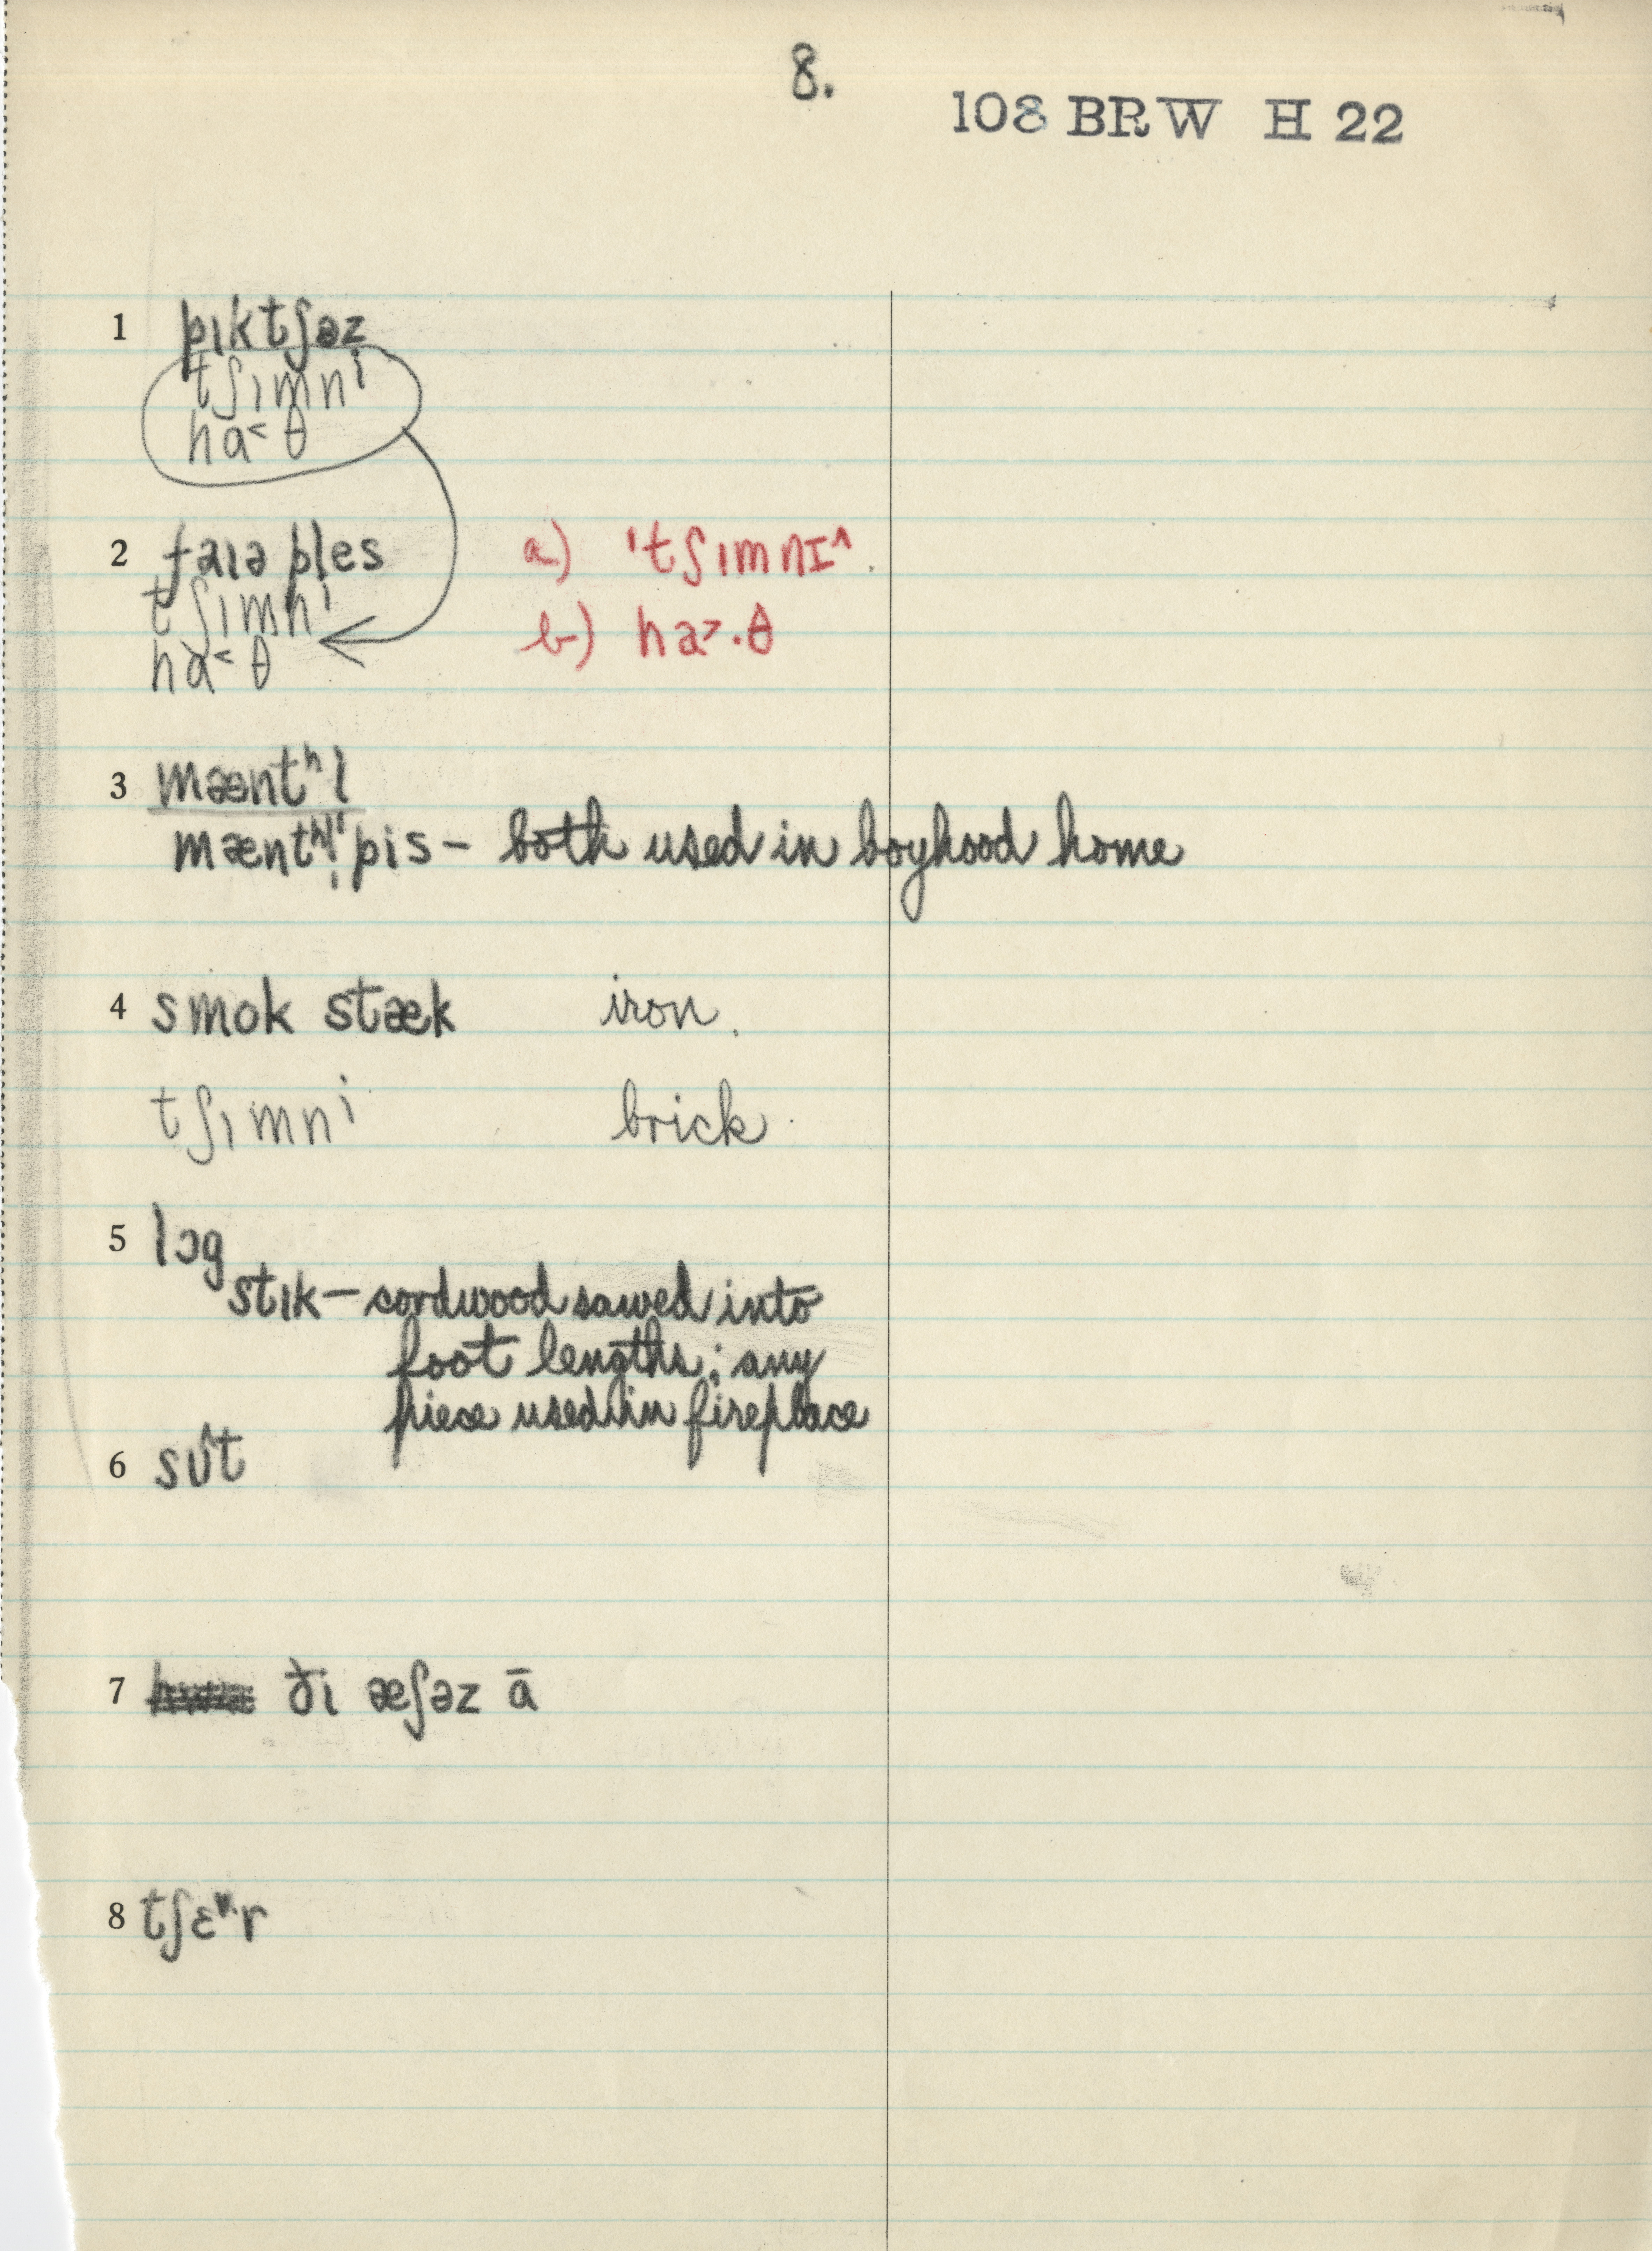 8.
108 BRW H 22
1 pɪktʃəz
tʃɪmnⁱ
ha˂θ
2 faɪə ples a) 'tʃɪmnɪ^.
tʃɪmnⁱ
ha˂θ b) ha˃·θ
3 mæntʰl
pis – both used in boyhood home
4 smok stæk iron.
tʃɪmnⁱ brick
5 lɔg
stɪk – cordwood sawed into
foot lengths; any
piece used in fireplace
6 sʊ̂t
7 ði æʃəz ā
8